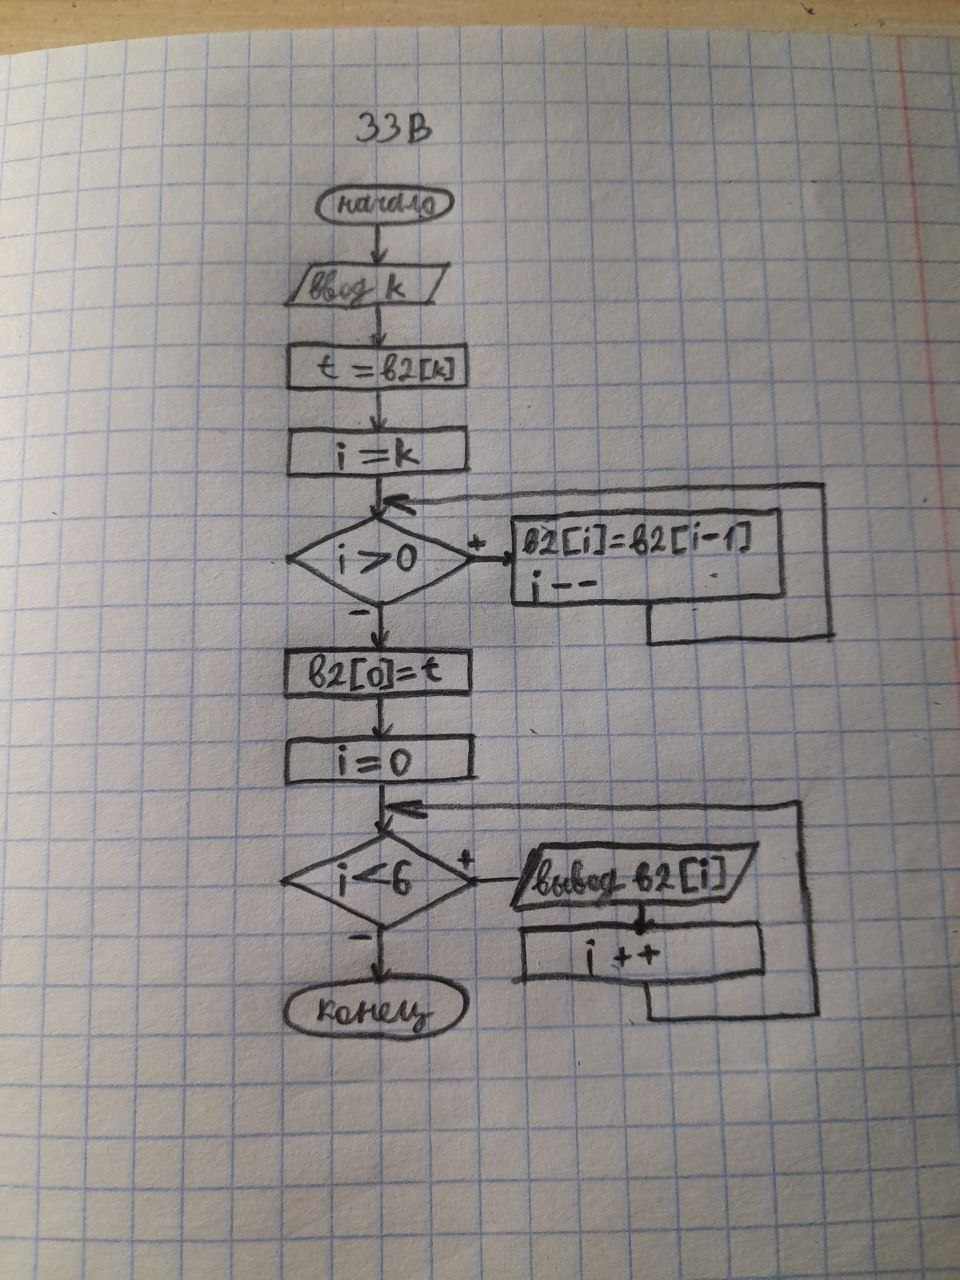 33В
начало
ввод k
t = в2[k]
i = k
i > 0
+
в2[i]=в2[i-1]
i--
-
в2[0]=t
i=0
i<6
+
вывод в2[i]
i++
-
конец